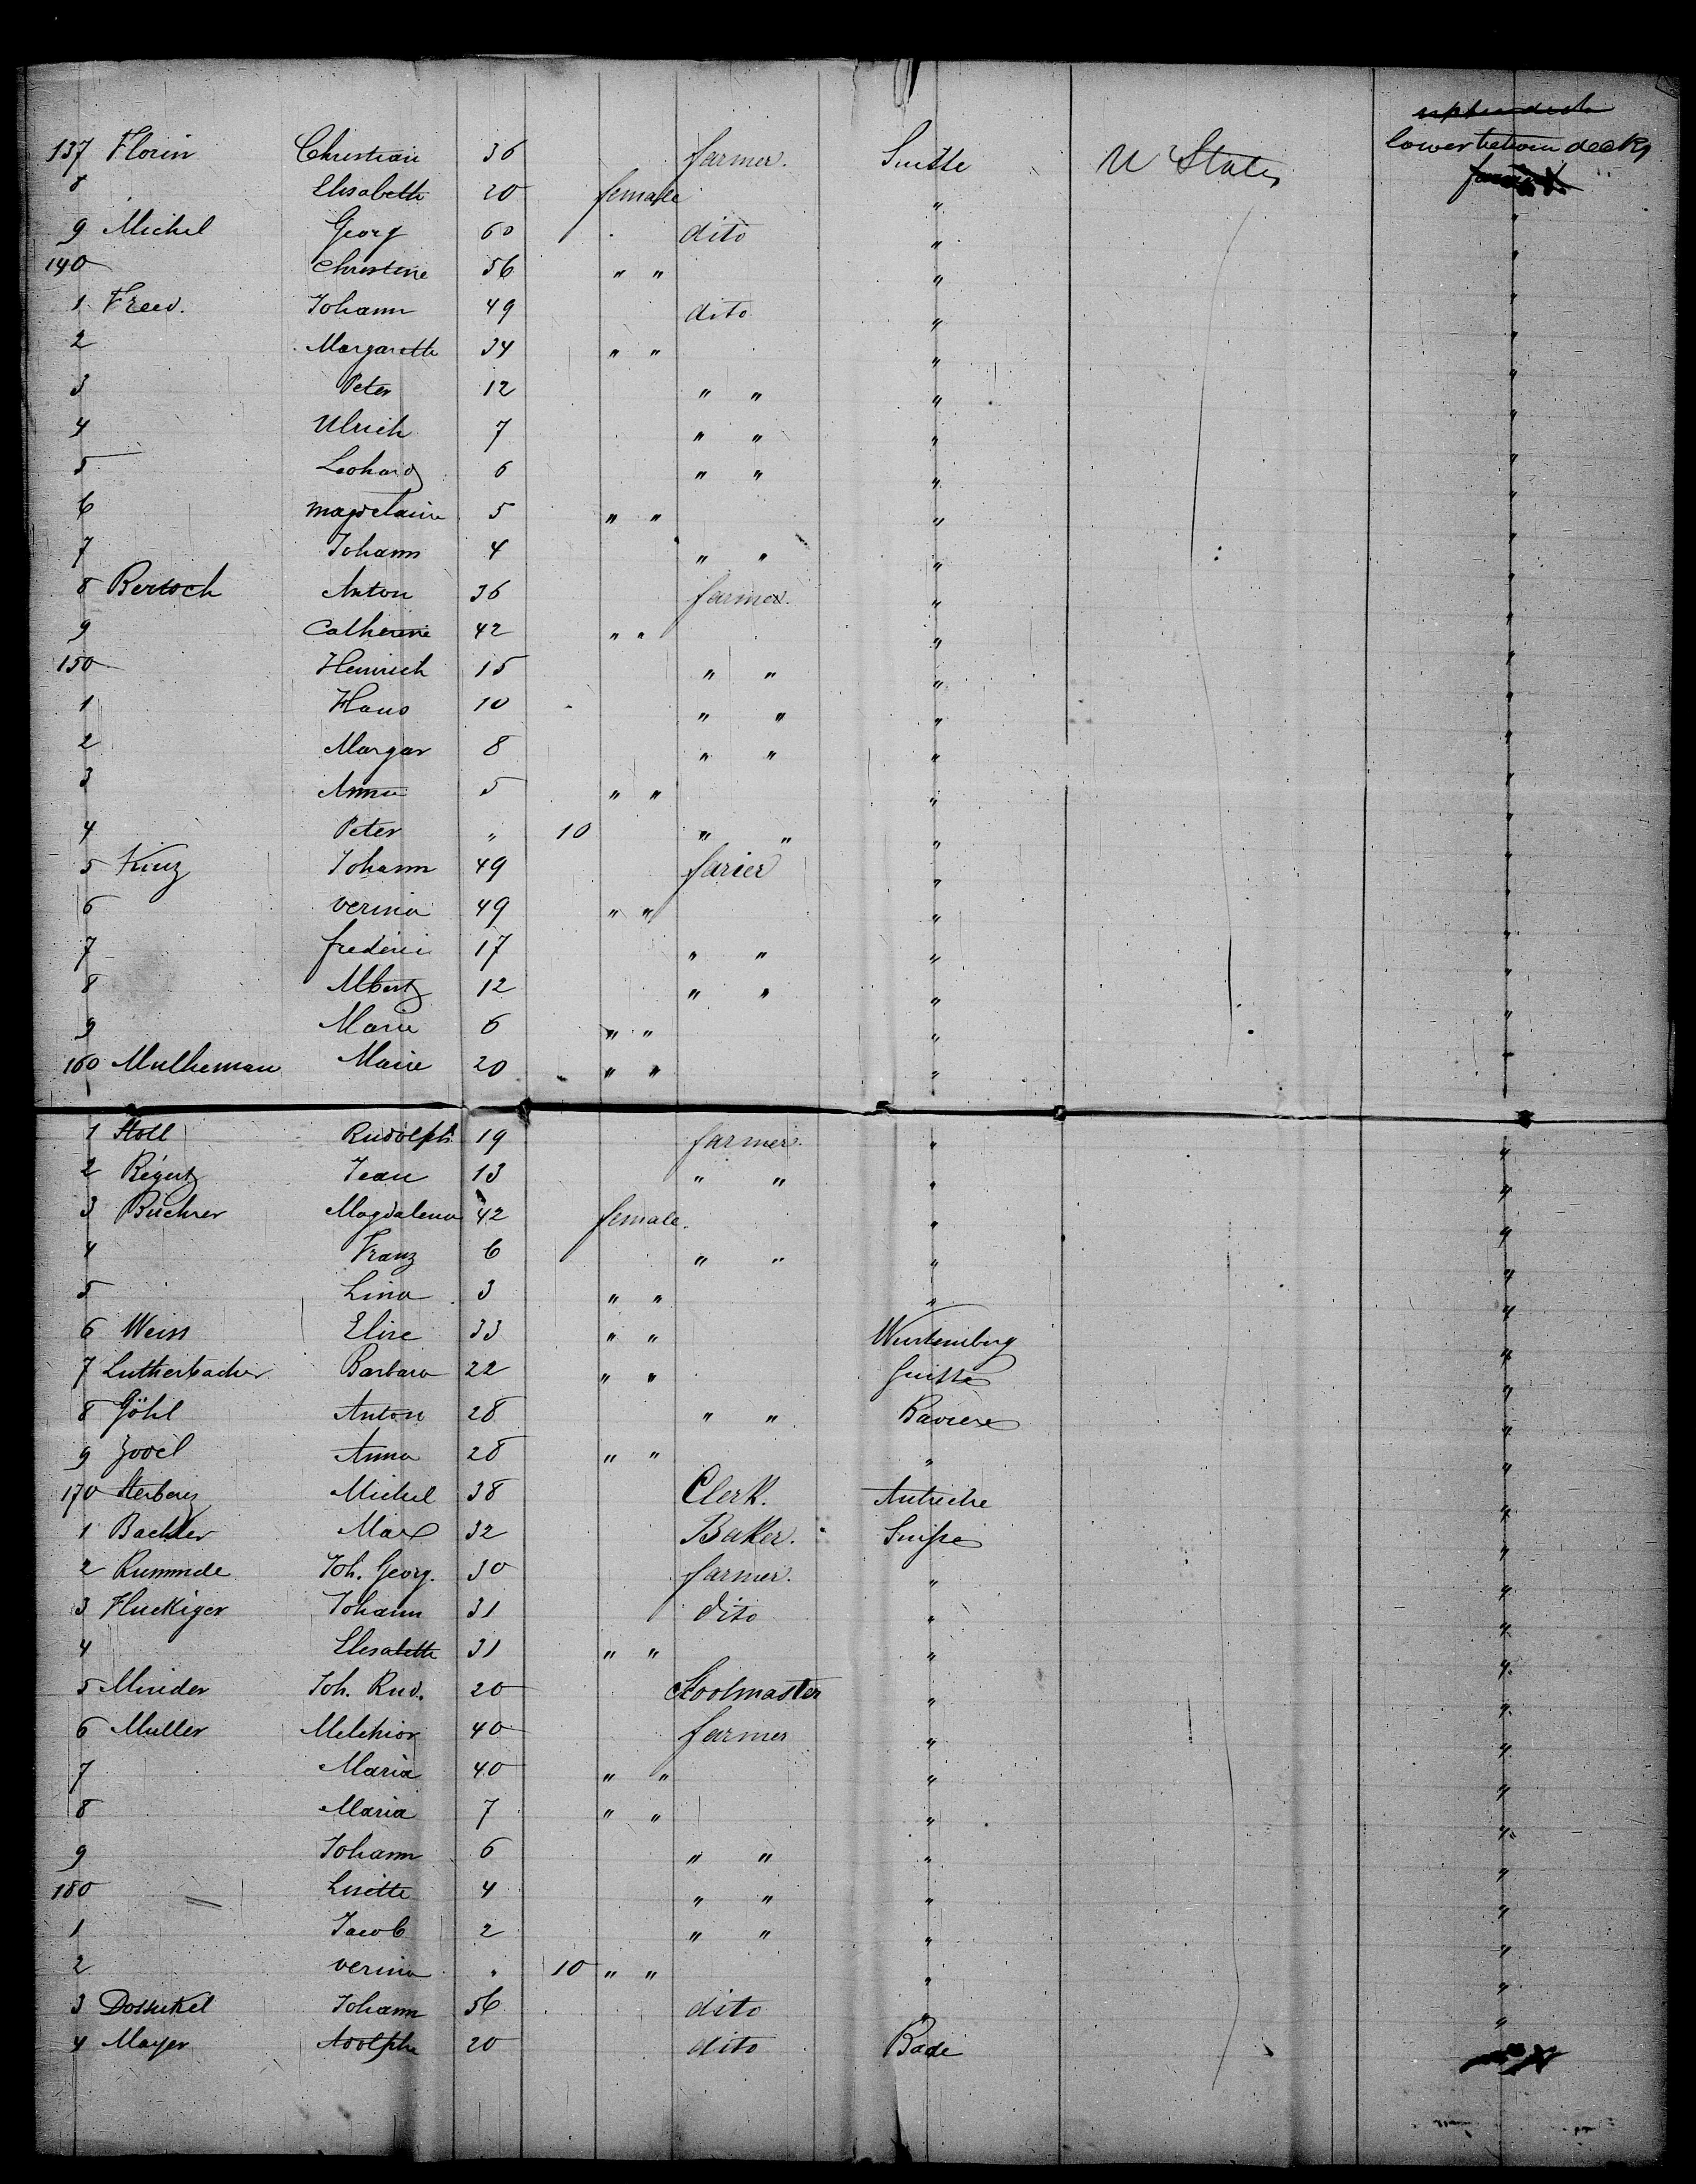 137 Florin Christian 36 farmer. Suisse U States lower between decks
8 Elisabeth 20 female "
9 Michel Georg 60 dito " "
140 Christine 56 " " " "
1 Johann 49 dito " "
2 Margareth 34 " " " "
3 Peter 12 " " " "
4 Ulrich 7 " " " "
5 Leohard 6 " " " "
6 magdelaine 5 " " " "
7 Johann 4 " " " "
8 Bertsch Anton 36 farmer. " "
9 Catherine 42 " " " "
150 Heinrich 15 " " " "
1 Hans 10 " " " "
2 Margar 8 " " " "
3 Anna 5 " " " "
4 Peter " 10 " " " "
5 Kinz Johann 49 farier " "
6 verina 49 " " " "
7 frederic 17 " " " "
8 Albert 12 " " " "
9 Marie 6 " " " "
160 Mulheman Marie 20 " " " "
1 Stoll Rudolph 19 farmer. " "
2 Jean 13 " " " "
3 Buchrer Magdalena 42 female. " "
4 Franz 6 " " " "
5 Lina 3 " " " "
6 Weiss Elise 33 " " Wurtemberg "
7 Lutherbacher Barbara 22 " " Suisse "
8 Göhl Anton 28 " " Baviere "
9 Anna 28 " " " "
170 Michel 38 Clerk. Autriche "
1 Bachler Max 32 Baker. Suisse "
2 Rummele Joh. Georg. 30 farmer. " "
3 Fluckiger Johann 31 dito " "
4 Elesabeth 31 " " " "
5 Minder Joh. Rud. 20 Skoolmaster " "
6 Muller Melchior 40 farmer " "
7 Maria 40 " " " "
8 Maria 7 " " " "
9 Johann 6 " " " "
180 Lisette 4 " " " "
1 Jacob 2 " " " "
2 verina " 10 " " " "
3 Johann 56 dito " "
4 Mayer Adolphe 20 dito Bade